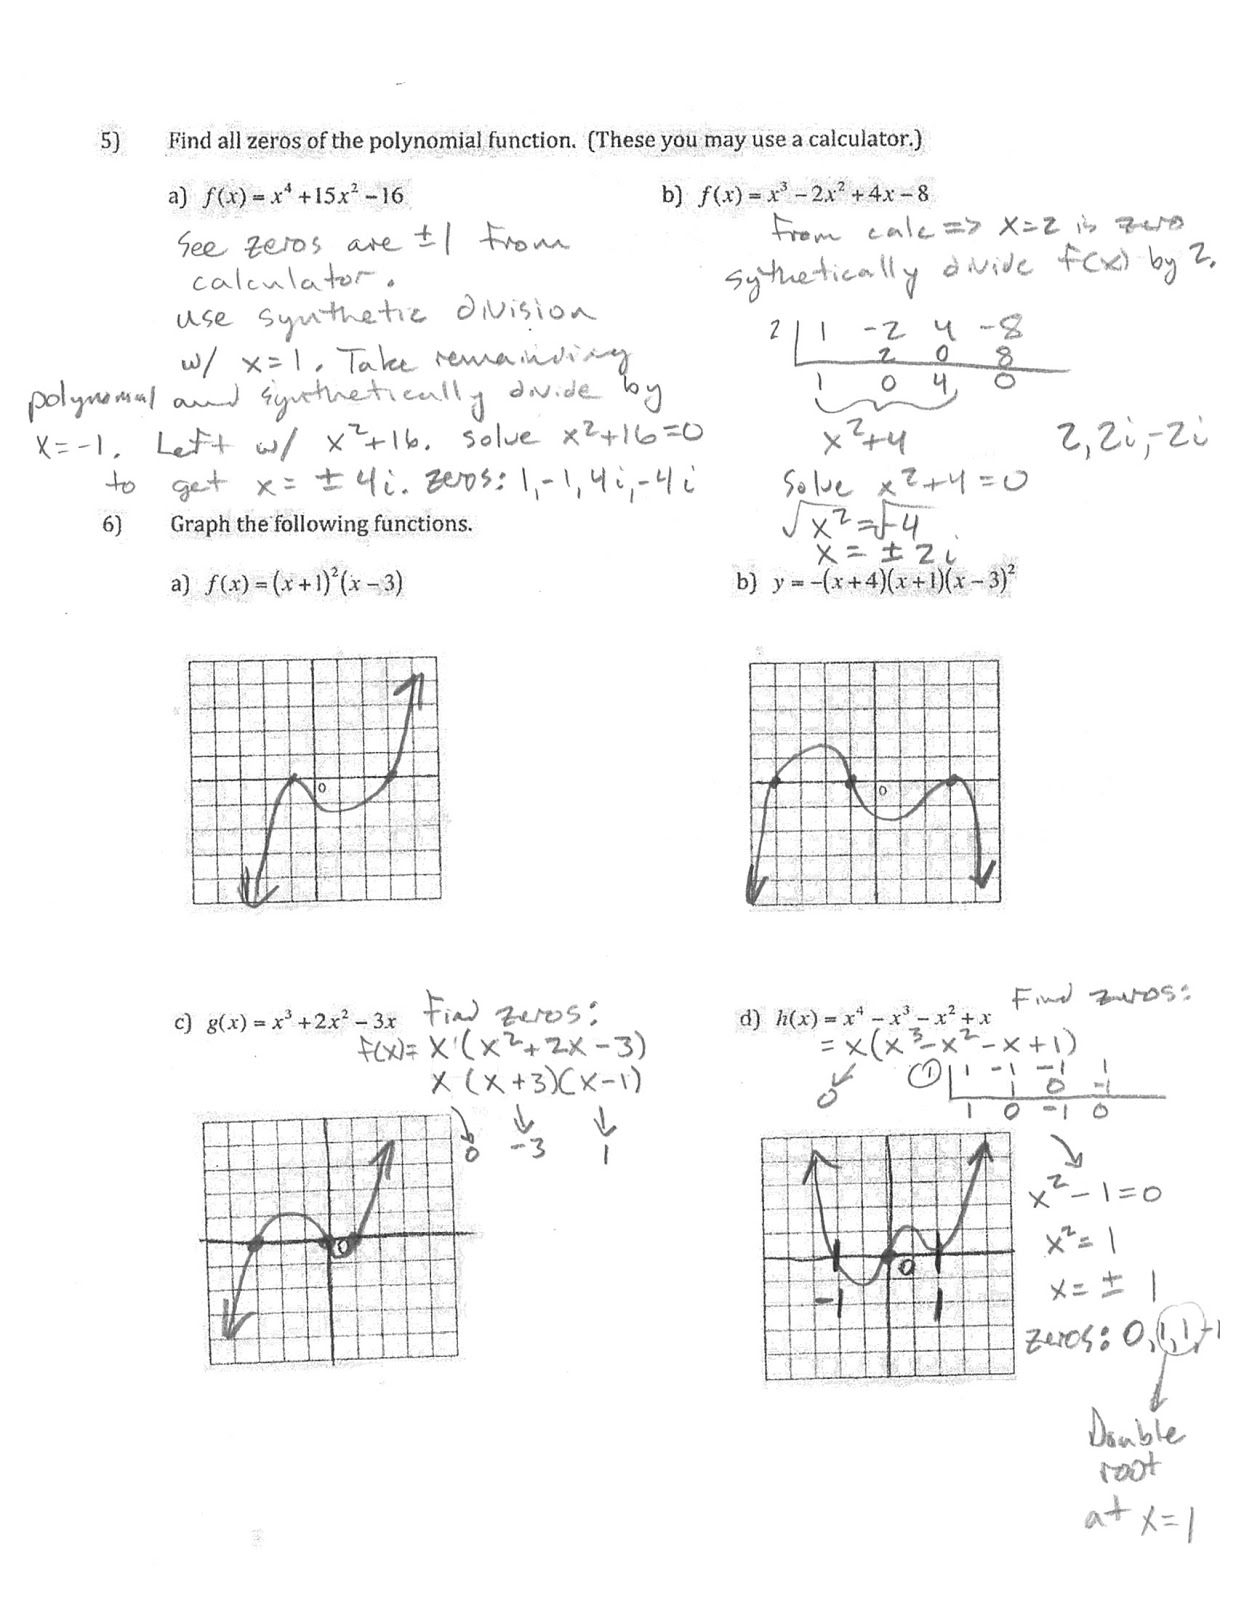 5) Find all zeros of the polynomial function. (These you may use a calculator.)
a) f(x) = x⁴ + 15x² − 16
See zeros are ±1 from
calculator.
use synthetic division
w/ x=1. Take remaining
polynomial and synthetically divide by
x=-1. Left w/ x²+16. solve x²+16=0
to get x= ±4i. zeros: 1,-1,4i,-4i
b) f(x) = x³ − 2x² + 4x − 8
From calc => x=2 is zero
sythetically divide f(x) by 2.
2 | 1 -2 4 -8
2 0 8
1 0 4 0
x²+4
2, 2i, -2i
Solve x²+4=0
√x² = √-4
x = ± 2i
6) Graph the following functions.
a) f(x) = (x+1)²(x−3)
0
b) y = −(x+4)(x+1)(x−3)²
0
c) g(x) = x³ + 2x² − 3x Find zeros:
f(x)= x(x²+2x-3)
x (x+3)(x-1)
0 -3 1
0
d) h(x) = x⁴ − x³ − x² + x Find zeros:
= x(x³-x²-x+1)
0
1 | 1 -1 -1 1
1 0 -1
1 0 -1 0
0
-1 1
x²-1=0
x²=1
x=± 1
zeros: 0,1,1,-1
Double
root
at x=1